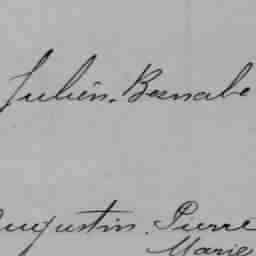 Julien. Bernabe
Augustin. Pierre
Marie